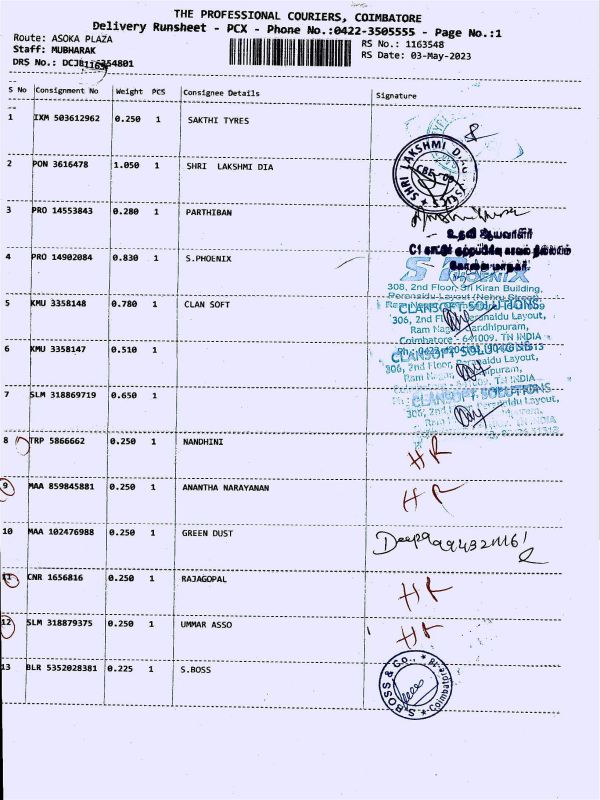 THE PROFESSIONAL COURIERS, COIMBATORE
Delivery Runsheet - PCX - Phone No.:0422-3505555 - Page No.:1
Route: ASOKA PLAZA
RS No.: 1163548
Staff: MUBHARAK
RS Date: 03-May-2023
DRS No.:
S No Consignment No Weight PCS Consignee Details Signature
1 IXM 503612962 0.250 1 SAKTHI TYRES
2 PON 3616478 1.050 1 SHRI LAKSHMI DIA
SHRI LAKSHMI
3 PRO 14553843 0.280 1 PARTHIBAN
உதவி ஆய்வாளர்
4 PRO 14902084 0.830 1 S.PHOENIX
PHOENIX
308, 2nd Floor, Sri Kiran Building,
5 KMU 3358148 0.780 1 CLAN SOFT
CLANSOFT SOLUTIONS
306, 2nd Floor, Peranaidu Layout,
Ram Nagar, Gandhipuram,
Coimbatore - 641009. TN INDIA
6 KMU 3358147 0.510 1
CLANSOFT SOLUTIONS
306, 2nd Floor, Peranaidu Layout,
7 SLM 318869719 0.650 1
CLANSOFT SOLUTIONS
8 TRP 5866662 0.250 1 NANDHINI
HR
9 MAA 859845881 0.250 1 ANANTHA NARAYANAN
HR
10 MAA 102476988 0.250 1 GREEN DUST
Deepa
11 CNR 1656816 0.250 1 RAJAGOPAL
HR
12 SLM 318879375 0.250 1 UMMAR ASSO
HR
13 BLR 5352028381 0.225 1 S.BOSS
S. BOSS & Co., * Coimbatore-18